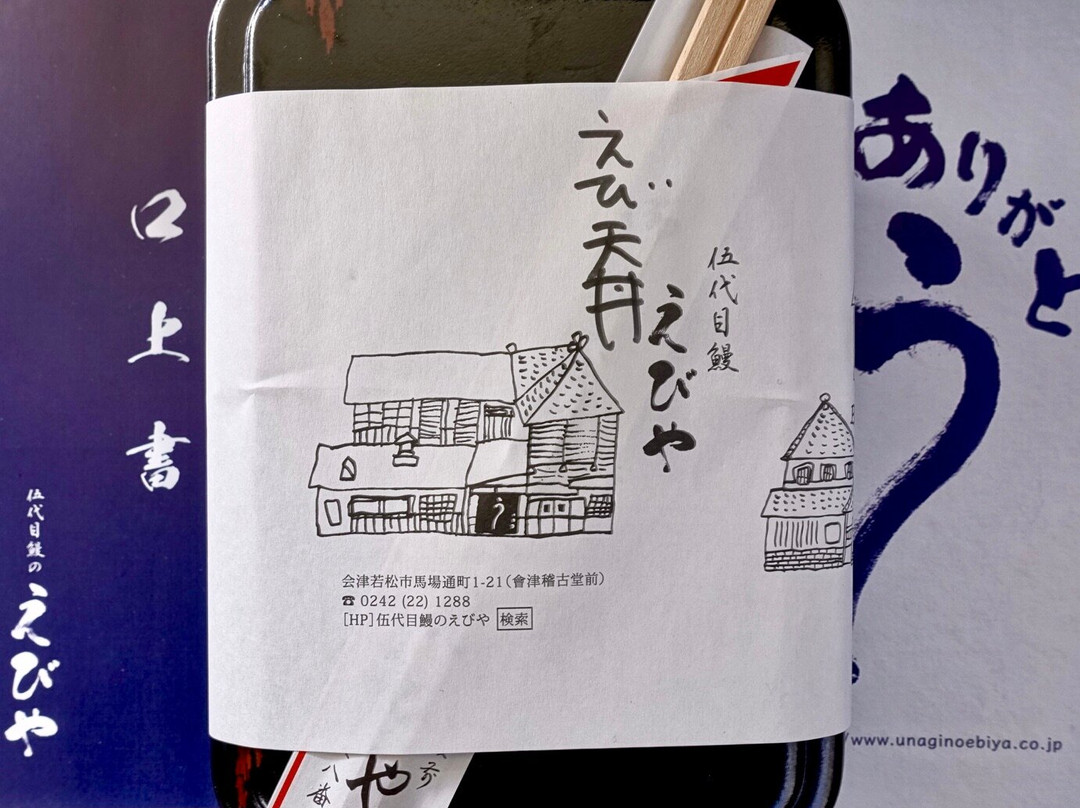 口上書
伍代目鰻の
えびや
えび天丼
伍代目鰻
えびや
う
会津若松市馬場通町1-21(會津稽古堂前)
☎ 0242 (22) 1288
[HP]伍代目鰻のえびや 検索
ありがと
う
www.unaginoebiya.co.jp
や
八番